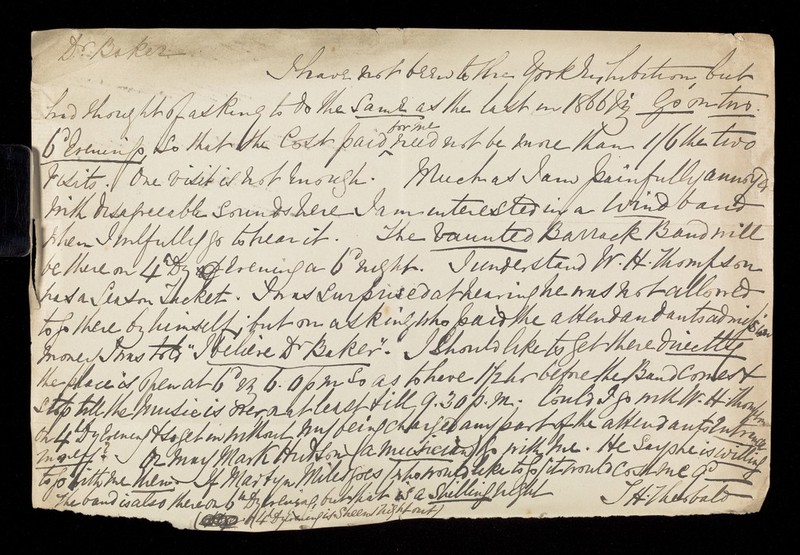 Dr. Baker
I have not been to the York Exhibition, but
had thought of asking to do the same as the last in 1866 viz Go on two
6d Evenings, so that the cost paid for me need not be more than 1/6 the two
visits. One visit is not enough. Much as I am painfully annoyed
with disagreeable sounds here I am interested in a Wind band
when I wilfully go to hear it. The vaunted Barrack Band will
be there on 4th Dy Evening a 6d night. I understand W. H. Thompson
has a Season Ticket. I was surprised at hearing he was not allowed
to go there by himself; but on asking who paid the attendandants admission
money I was told "I believe Dr Baker". I should like to get there directly
the place is open at 6d viz 6.0 pm so as to have 1 1/2 hr before the Band comes &
stop till the Music is over a at least till 9.30 p.m. Could I go with W. H. Thompson
on 4th Dy Evening & so get in without my being charged any part of the attendants Entrance
money? Or may Mark Hudson (a musician) go with me. He says he is willing
to go with me then. If Martyn Miles goes (who would like to go) it would cost me 9d
The band is also there on 6th Dy Evening, but that is a Shilling night J H Theobald
(4 Dy evening is Sheens night out)